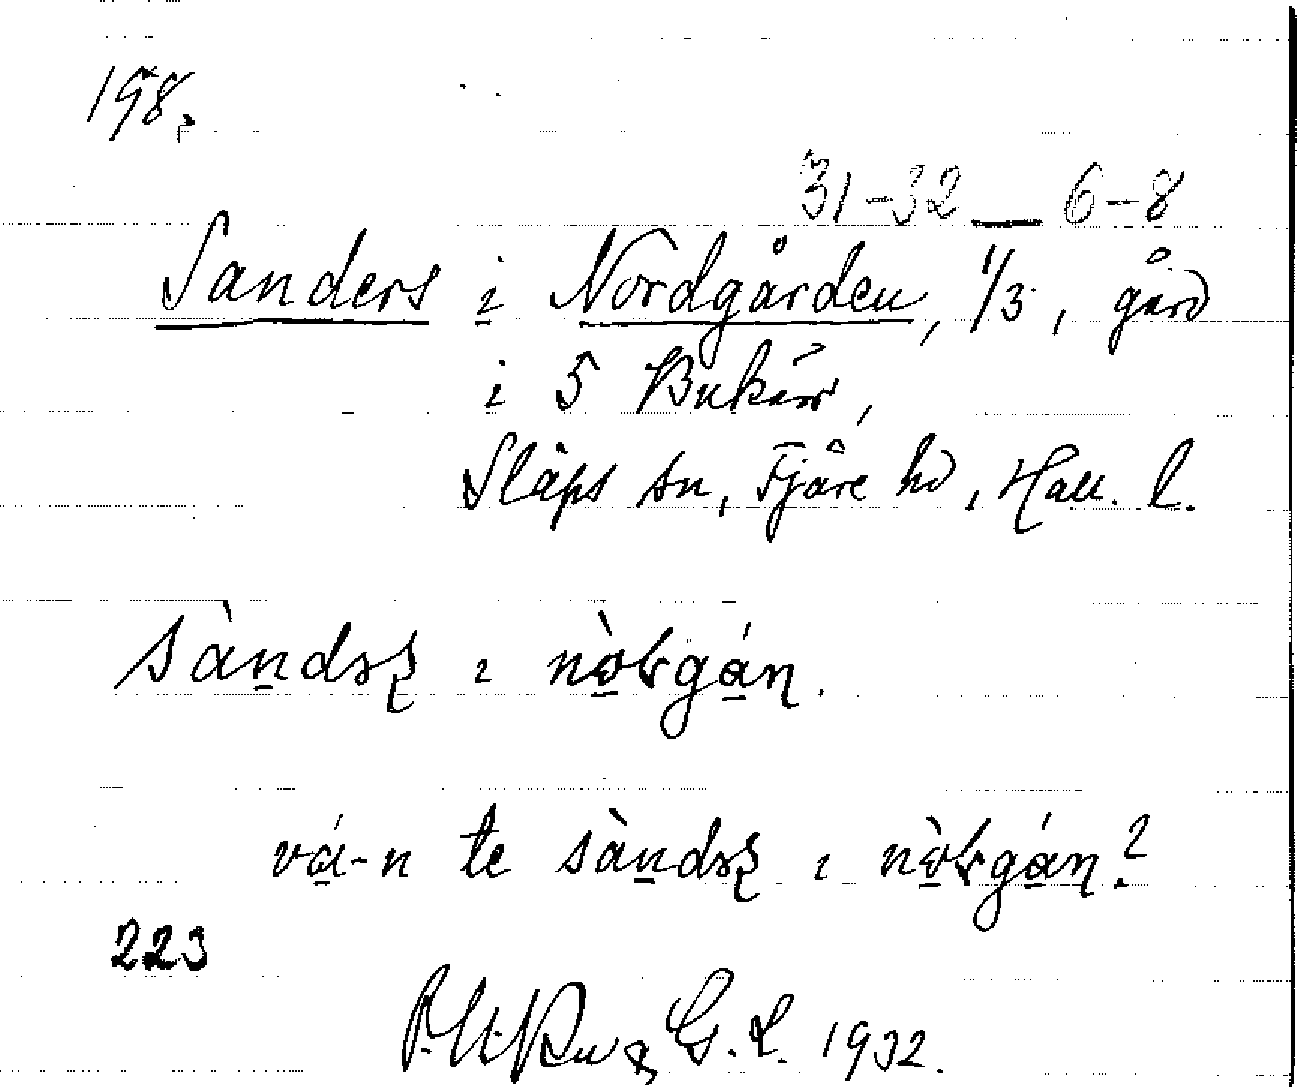 198.
31-32 — 6-8
Sanders i Nordgården, 1/3, gård
i 5 Bukärr,
Släps sn, Fjäre hd, Hall. l.
sàndɘʂ ı nòrgán.
vá-n te sàndɘʂ ı nòrgán?
223
G. L. 1932.